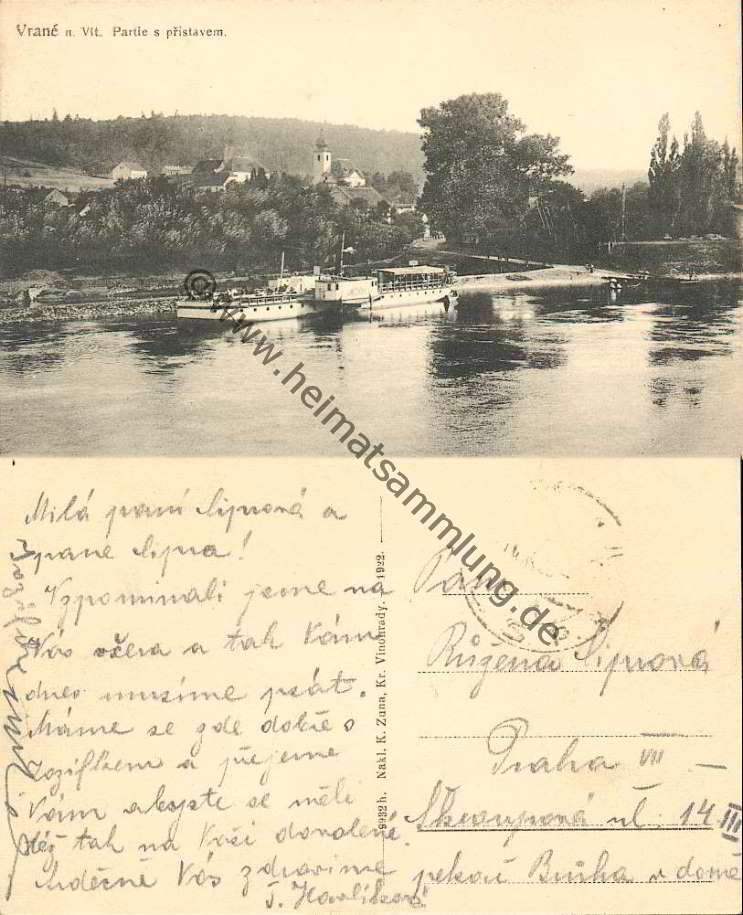 Vrané n. Vlt. Partie s přístavem.
© www.heimatsammlung.de
Milá paní Sipnová a
pane Sipna!
Vzpomínali jsme na
Vás včera a tak Vám
dnes musíme psát.
Máme se zde dobře s
a přejeme
Vám abyste se měli
též tak na Vaší dovolené.
Srdečně Vás zdravíme
F. Havlíková
9932 h. Nakl. K. Zuna, Kr. Vinohrady. 1922.
Paní
Růžena Sipnová
Praha VII –
ul. 14 III
pekař Brůha v domě